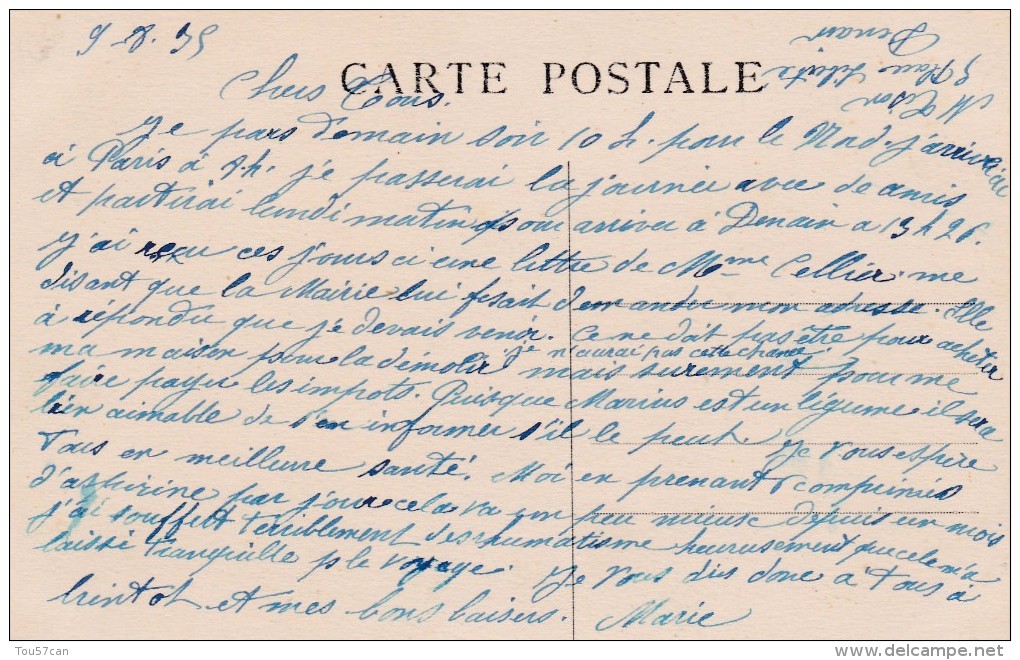 9-8.35
CARTE POSTALE
Place
Denain
Chers Tous.
Je pars Demain soir 10 h. pour le Nord. j'arriverai
à Paris à 7.h. je passerai la journée avec de amis
et partirai lundi matin pour arriver à Denain a 13 h 26.
J'ai reçu ces jours ci une lettre de Mme Cellier me
disant que la Mairie lui fesait demander mon adresse. Elle
à répondu que je devais venir. Ce ne doit pas être pour acheter
ma maison pour la démolir je n'aurai pas cette chance mais surement pour me
faire payer les impots. Puisque Marius est un légume il sera
bien aimable de s'en informer s'il le peut. Je vous espère
Tous en meilleure santé. Moi en prenant comprimés
d'aspirine par jour cela va un peu mieux depuis un mois
j'ai souffert terriblement des rhumatisme heureusement que cela m'a
laissé tranquille p le voyage. Je vous dis donc a Tous à
bientot et mes bons baisers. Marie
Tou57can
© Delcampe.net